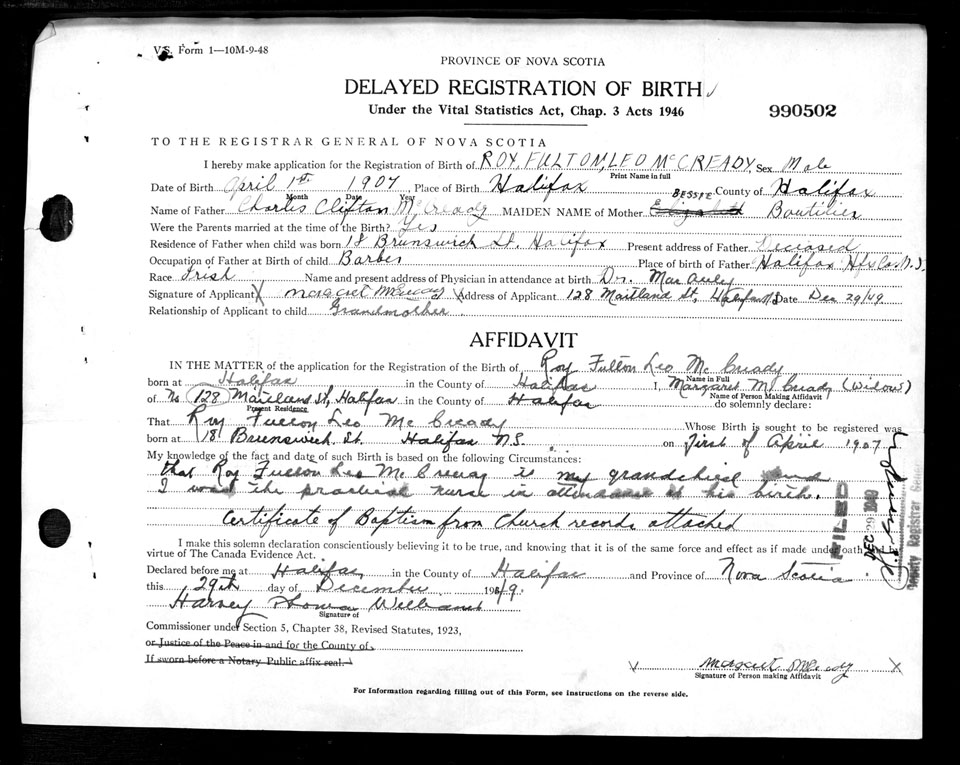 V.S. Form 1—10M-9-48
PROVINCE OF NOVA SCOTIA
DELAYED REGISTRATION OF BIRTH
Under the Vital Statistics Act, Chap. 3 Acts 1946
990502
TO THE REGISTRAR GENERAL OF NOVA SCOTIA
I hereby make application for the Registration of Birth of ROY, FULTON, LEO McCREADY, Sex Male
Print Name in full
Date of Birth April 1st 1907, Place of Birth Halifax County of Halifax
Month Date Year BESSIE
Name of Father Charles Clifton McCready MAIDEN NAME of Mother Elizabeth Boutilier
Were the Parents married at the time of the Birth? Yes
Residence of Father when child was born 18 Brunswick St. Halifax Present address of Father Deceased
Occupation of Father at Birth of child Barber Place of birth of Father Halifax Hfx Co. N.S.
Race Irish Name and present address of Physician in attendance at birth Dr. MacAuly
Signature of Applicant X Margaret McCready X Address of Applicant 128 Maitland St, Halifax N.S. Date Dec 29/49
Relationship of Applicant to child Grandmother
AFFIDAVIT
IN THE MATTER of the application for the Registration of the Birth of Roy Fulton Leo McCready
Name in Full
born at Halifax in the County of Halifax I, Margaret McCready (Widow)
Name of Person Making Affidavit
of No 128 Maitland St, Halifax in the County of Halifax do solemnly declare:
Present Residence
That Roy Fulton Leo McCready Whose Birth is sought to be registered was
born at 18 Brunswick St. Halifax N.S. on First of April 1907
My knowledge of the fact and date of such Birth is based on the following Circumstances:
that Roy Fulton Leo McCready is my grandchild and
I was the practical nurse in attendance at his birth.
Certificate of Baptism from Church records attached
I make this solemn declaration conscientiously believing it to be true, and knowing that it is of the same force and effect as if made under oath and by
virtue of The Canada Evidence Act.
Declared before me at Halifax in the County of Halifax and Province of Nova Scotia
this 29th day of December 1949.
Harvey Thomas Williams
Signature of
Commissioner under Section 5, Chapter 38, Revised Statutes, 1923,
or Justice of the Peace in and for the County of
If sworn before a Notary Public affix seal.
Margaret McCready X
Signature of Person making Affidavit
For Information regarding filling out of this Form, see instructions on the reverse side.
FILED
DEC 29 1949
Deputy Registrar General